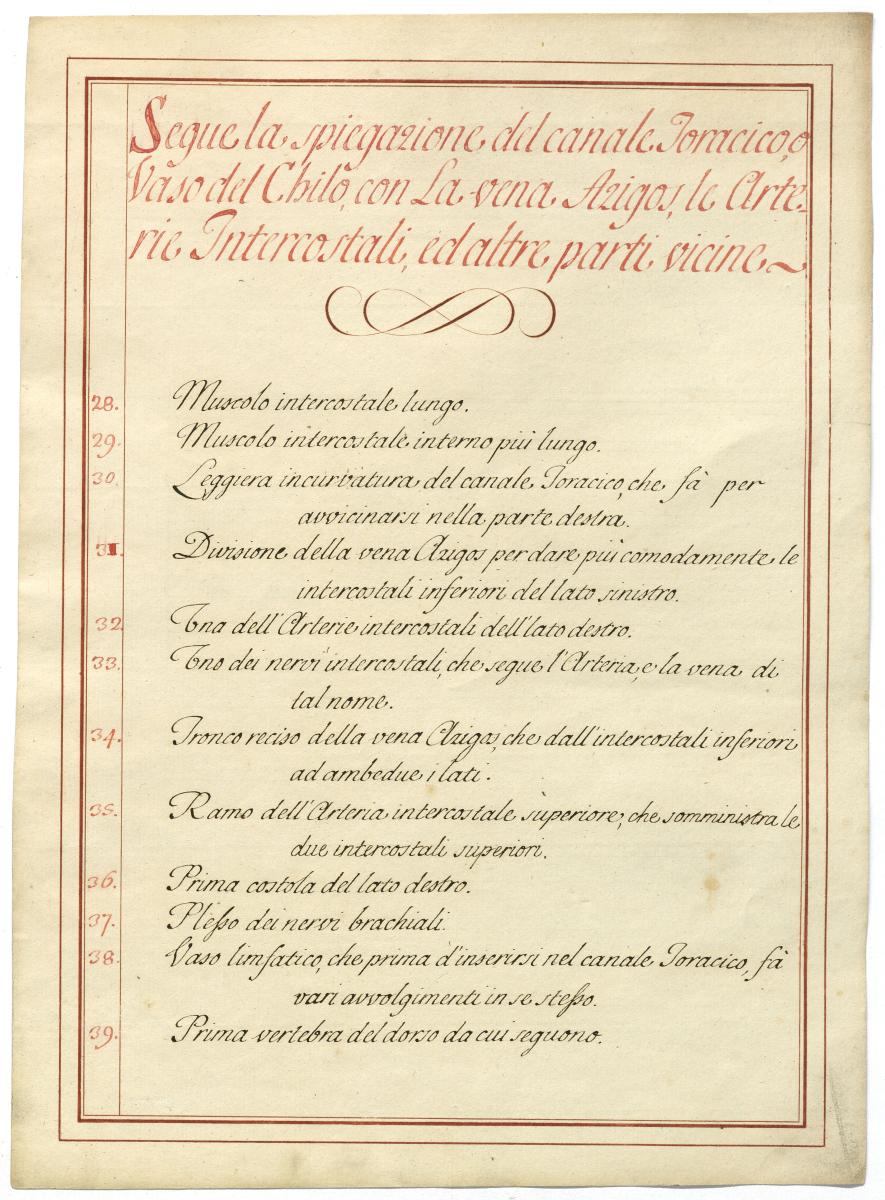 Segue la spiegazione del canale Toracico, o
Vaso del Chilo, con La vena Azigos, le Arte-
rie Intercostali, ed altre parti vicine~
28. Muscolo intercostale lungo.
29. Muscolo intercostale interno più lungo.
30. Leggiera incurvatura del canale Toracico, che fà per
avvicinarsi nella parte destra.
31. Divisione della vena Azigos per dare più comodamente le
intercostali inferiori del lato sinistro.
32 Una dell'Arterie intercostali dell'lato destro.
33. Uno dei nervi intercostali, che segue l'Arteria, e la vena di
tal nome.
34. Tronco reciso della vena Azigos, che dall'intercostali inferiori
ad ambedue i lati.
35. Ramo dell'Arteria intercostale superiore, che somministra le
due intercostali superiori.
36. Prima costola del lato destro.
37. Plesso dei nervi brachiali.
38. Vaso limfatico, che prima d'inserirsi nel canale Toracico, fà
vari avvolgimenti in se stesso.
39. Prima vertebra del dorso da cui seguono.